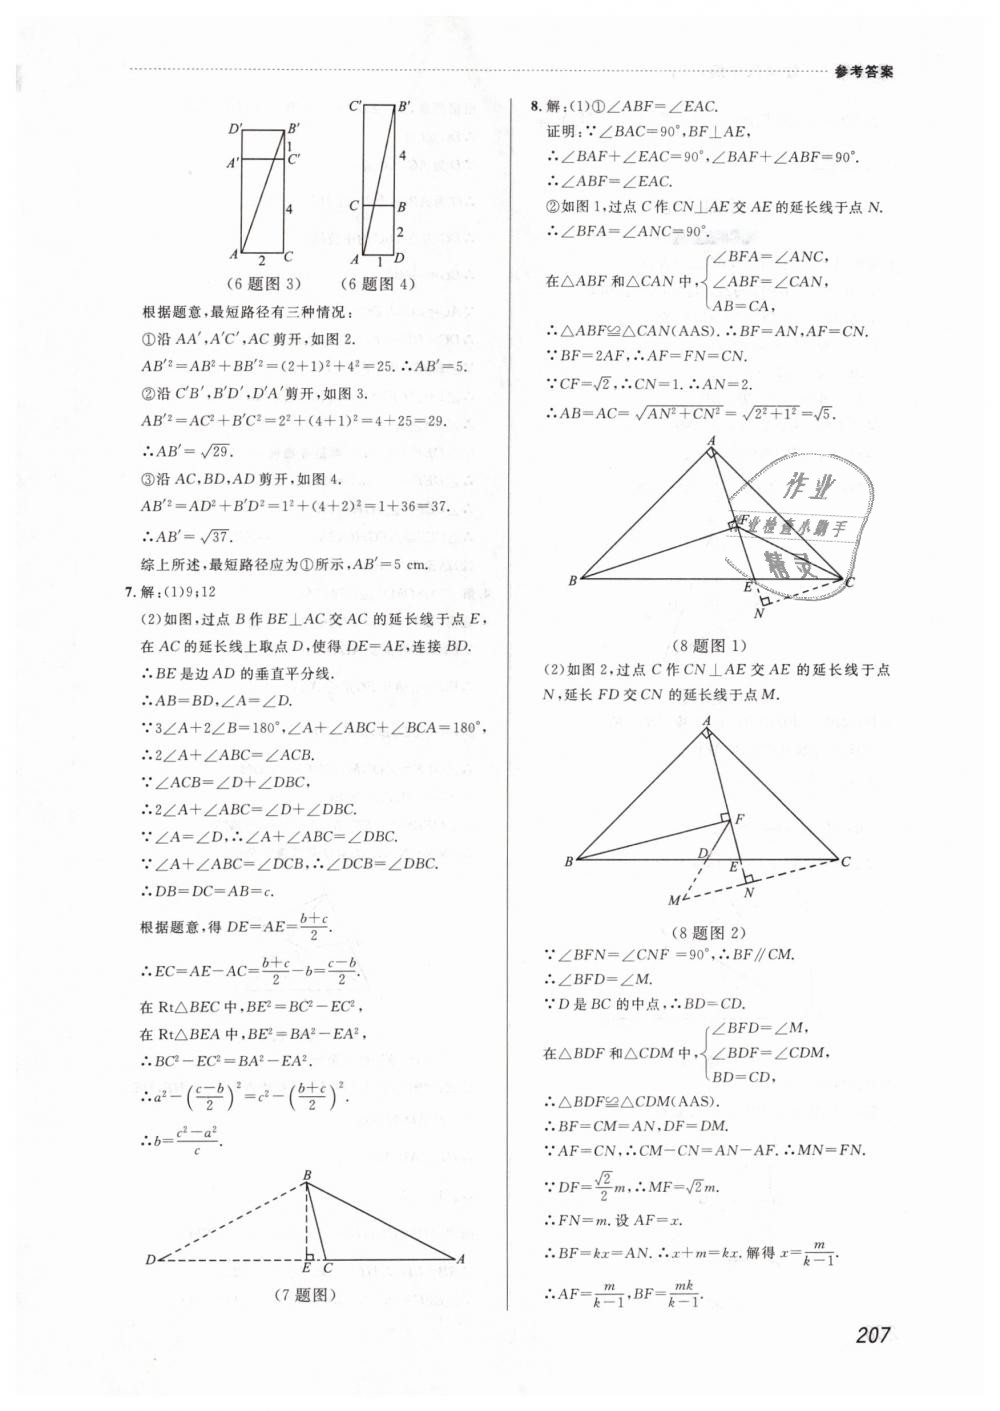 参考答案
D' B' 1
A' C'
4
A 2 C
(6题图3)
C' B'
4
C B
2
A 1 D
(6题图4)
根据题意,最短路径有三种情况:
①沿 AA′,A′C′,AC 剪开,如图 2.
AB′²=AB²+BB′²=(2+1)²+4²=25.∴AB′=5.
②沿 C′B′,B′D′,D′A′剪开,如图 3.
AB′²=AC²+B′C²=2²+(4+1)²=4+25=29.
∴AB′=√29.
③沿 AC,BD,AD 剪开,如图 4.
AB′²=AD²+B′D²=1²+(4+2)²=1+36=37.
∴AB′=√37.
综上所述,最短路径应为①所示,AB′=5 cm.
7.解:(1)9;12
(2)如图,过点 B 作 BE⊥AC 交 AC 的延长线于点 E,
在 AC 的延长线上取点 D,使得 DE=AE,连接 BD.
∴BE 是边 AD 的垂直平分线.
∴AB=BD,∠A=∠D.
∵3∠A+2∠B=180°,∠A+∠ABC+∠BCA=180°,
∴2∠A+∠ABC=∠ACB.
∵∠ACB=∠D+∠DBC,
∴2∠A+∠ABC=∠D+∠DBC.
∵∠A=∠D,∴∠A+∠ABC=∠DBC.
∵∠A+∠ABC=∠DCB,∴∠DCB=∠DBC.
∴DB=DC=AB=c.
根据题意,得 DE=AE=(b+c)/2.
∴EC=AE−AC=(b+c)/2−b=(c−b)/2.
在 Rt△BEC 中,BE²=BC²−EC²,
在 Rt△BEA 中,BE²=BA²−EA²,
∴BC²−EC²=BA²−EA².
∴a²−((c−b)/2)²=c²−((b+c)/2)².
∴b=(c²−a²)/c.
B
D E C A
(7题图)
8.解:(1)①∠ABF=∠EAC.
证明:∵∠BAC=90°,BF⊥AE,
∴∠BAF+∠EAC=90°,∠BAF+∠ABF=90°.
∴∠ABF=∠EAC.
②如图 1,过点 C 作 CN⊥AE 交 AE 的延长线于点 N.
∴∠BFA=∠ANC=90°.
∠BFA=∠ANC,
在△ABF 和△CAN 中,{∠ABF=∠CAN,
AB=CA,
∴△ABF≌△CAN(AAS).∴BF=AN,AF=CN.
∵BF=2AF,∴AF=FN=CN.
∵CF=√2,∴CN=1.∴AN=2.
∴AB=AC=√(AN²+CN²)=√(2²+1²)=√5.
A
作业
作业检查小助手
F
精灵
B E C
N
(8题图1)
(2)如图 2,过点 C 作 CN⊥AE 交 AE 的延长线于点
N,延长 FD 交 CN 的延长线于点 M.
A
F
B D E C
M N
(8题图2)
∵∠BFN=∠CNF =90°,∴BF∥CM.
∴∠BFD=∠M.
∵D 是 BC 的中点,∴BD=CD.
∠BFD=∠M,
在△BDF 和△CDM 中,{∠BDF=∠CDM,
BD=CD,
∴△BDF≌△CDM(AAS).
∴BF=CM=AN,DF=DM.
∵AF=CN,∴CM−CN=AN−AF.∴MN=FN.
∵DF=(√2/2)m,∴MF=√2m.
∴FN=m.设 AF=x.
∴BF=kx=AN.∴x+m=kx.解得 x=m/(k−1).
∴AF=m/(k−1),BF=mk/(k−1).
207